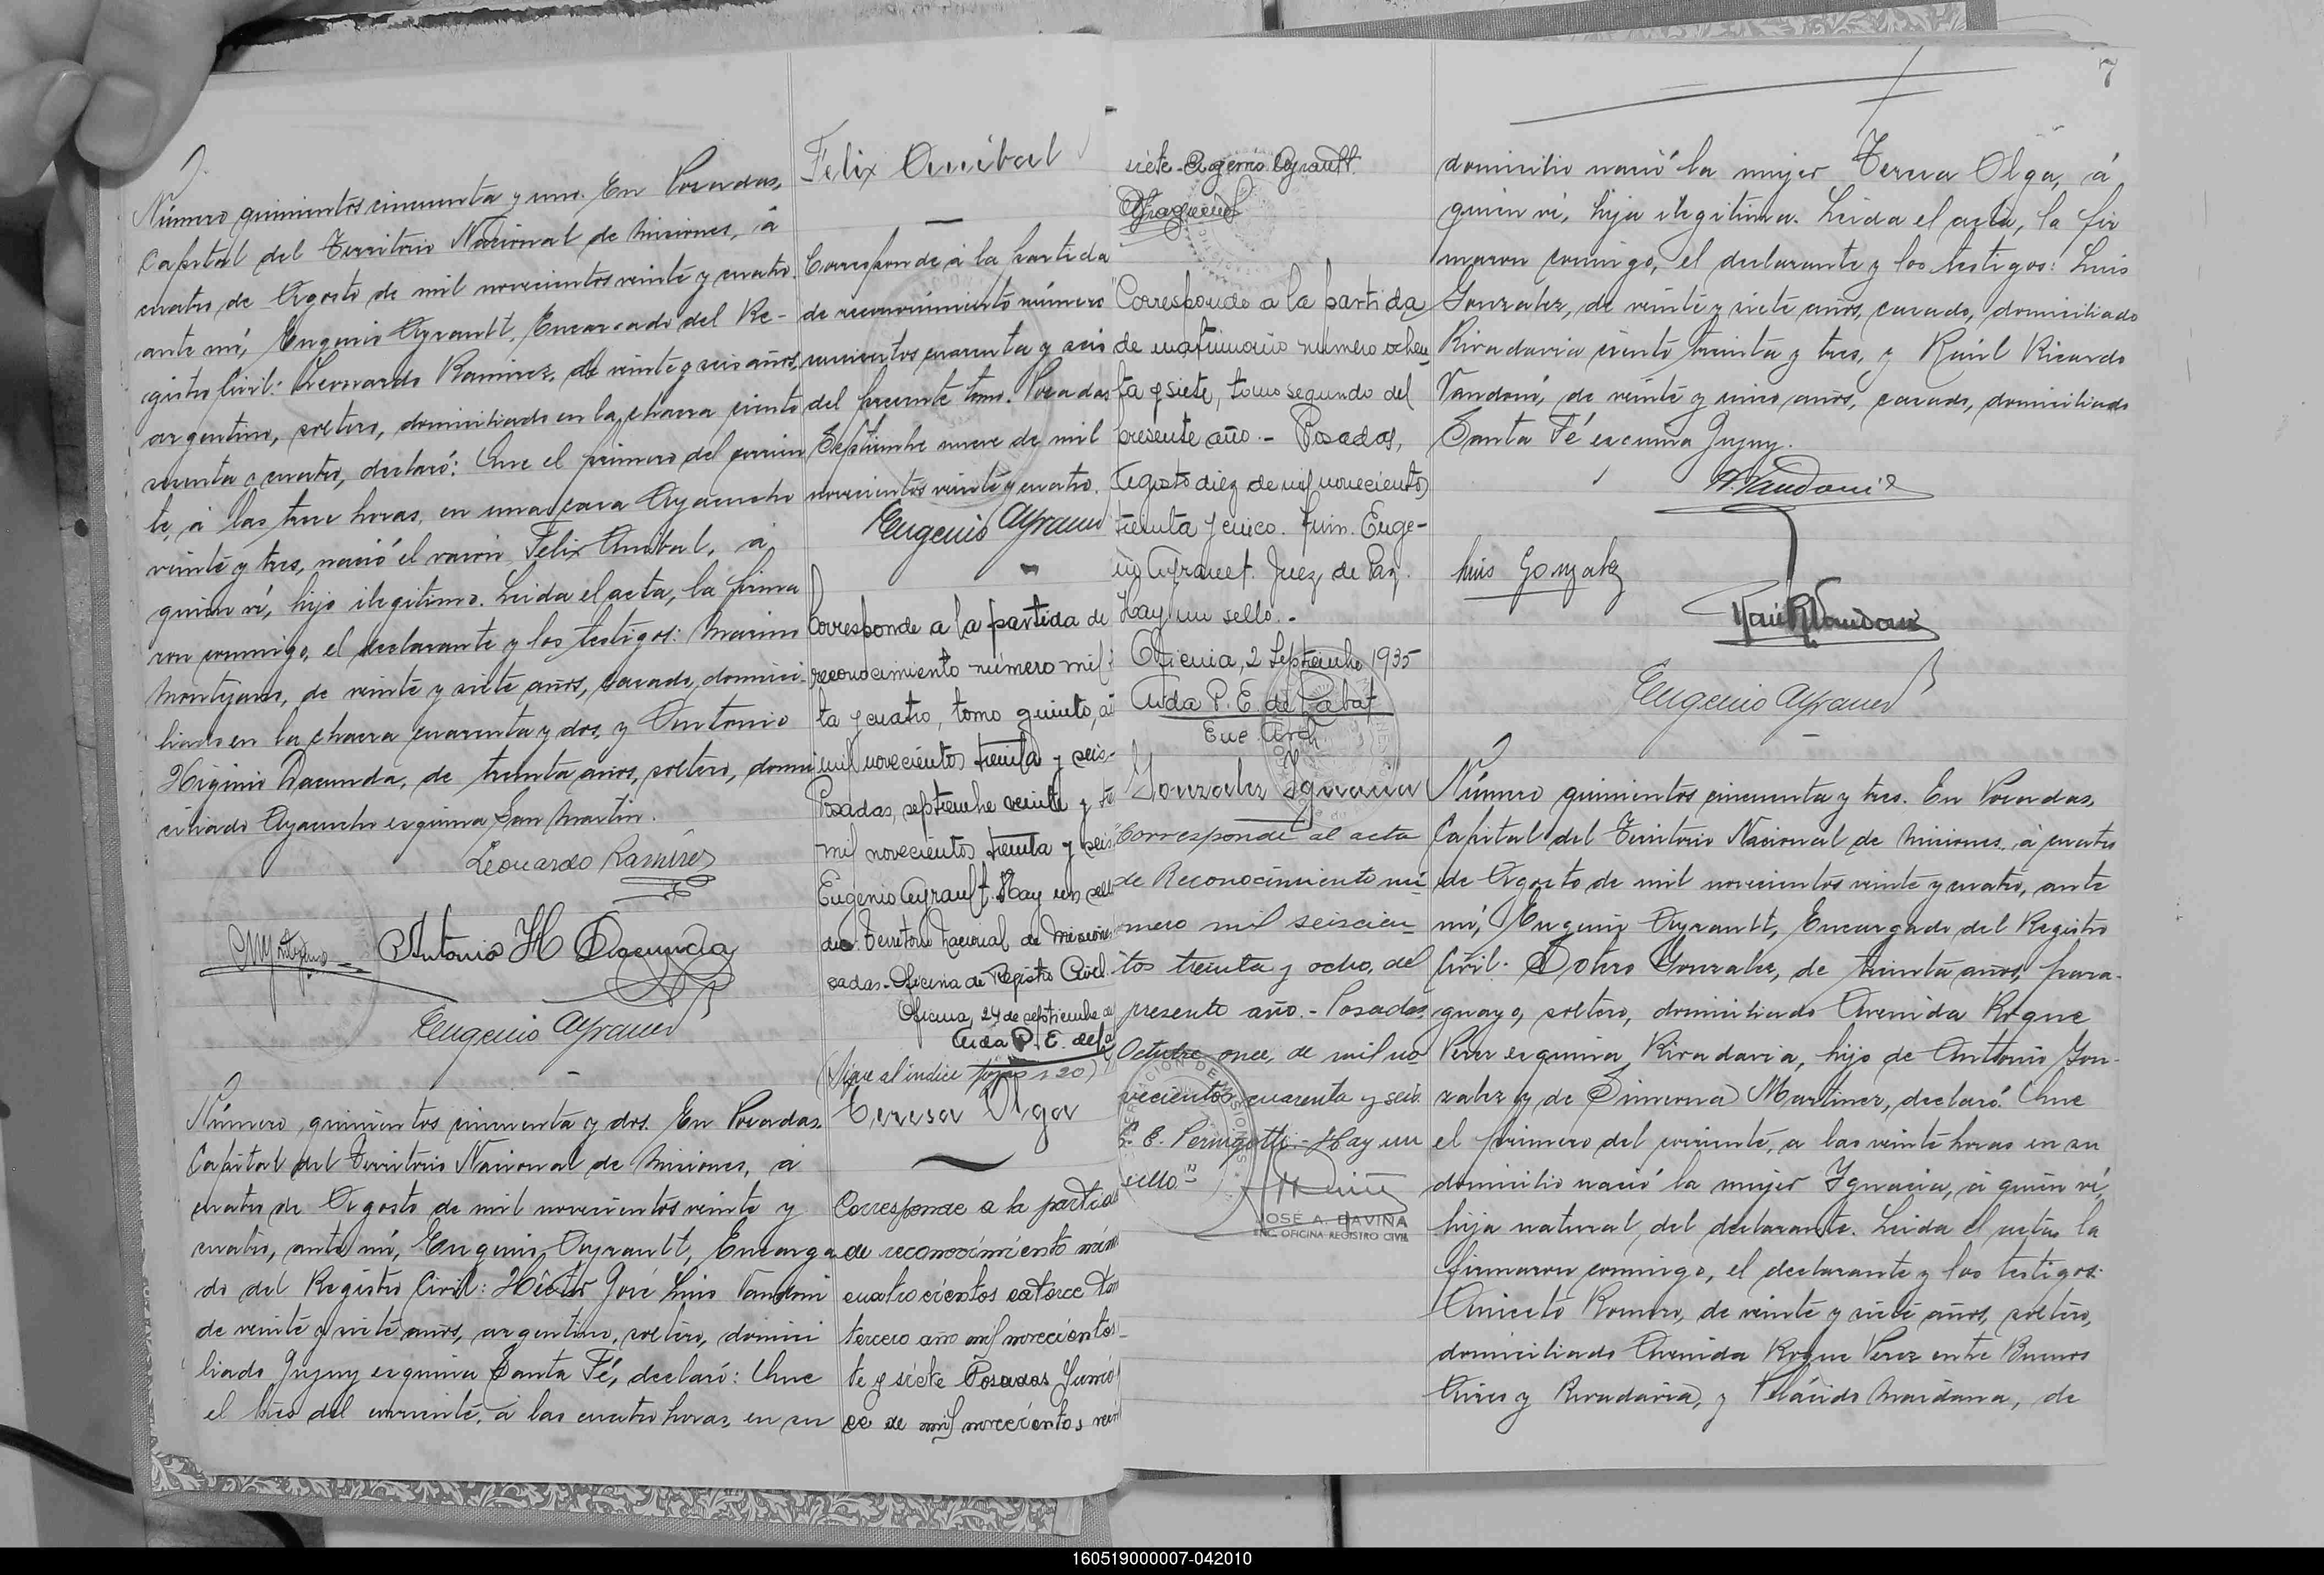 7
Número quinientos cincuenta y uno. En Posadas,
Capital del Territorio Nacional de Misiones, á
cuatro de Agosto de mil novecientos veinte y cuatro.
ante mí, Eugenio Ayrault, Encarcado del Re-
gistro Civil: Leonardo Ramirez, de veinte y seis años,
argentino, soltero, domiciliado en la chacra ciento
cuenta y cuatro, declaró: Que el primero del corrien
te, á las trece horas, en una casa Ayacucho
veinte y tres, nació el varon Felix Anibal, á
quien ví, hijo ilegitimo. Leida el acta, la firma
ron conmigo, el declarante y los testigos: Marino
Montejano, de veinte y siete años, casado, domici-
liado en la chacra cuarenta y dos, y Antonio
Higinio Dacunda, de treinta años, soltero, domi
ciliado Ayacucho esquina San Martin.
Leonardo Ramirez
Antonio H Dacunda
Eugenio Ayrault
Número quinientos cincuenta y dos. En Posadas,
Capital del Territorio Nacional de Misiones, á
cuatro de Agosto de mil novecientos veinte y
cuatro, ante mí, Eugenio Ayrault, Encarga
do del Registro Civil: Héctor José Luis Vandoni
de veinte y siete años, argentino, soltero, domici
liado Jujuy esquina Santa Fé, declaró: Que
el tres del corriente, á las cuatro horas, en su
Felix Anibal
Corresponde á la partida
de reconocimiento número
seiscientos cuarenta y seis
del presente tomo. Posadas
Septiembre nueve de mil
novecientos veinte y cuatro.
Eugenio Ayrault
Corresponde a la partida de
reconocimiento número mil
ta y cuatro, tomo quinto, añ
mil novecientos treinta y seis-
Posadas, septiembre veinte y
mil novecientos treinta y seis
Eugenio Ayrault. Hay un sello
Territorio Nacional de Misiones
sadas-Oficina de Registro Civil
Oficina, 24 de septiembre de
Aida P. E. de
(Sigue al indice fojas 120)
Teresa Olga
Corresponde a la partida
de reconocimiento núm
cuatrocientos catorce tom
tercero año mil novecientos
te y siete Posadas Junio
ce de mil novecientos vein
siete-Eugenio Ayrault.
"Corresponde a la partida
de matrimonio número ochen
ta y siete, tomo segundo del
presente año.- Posadas,
Agosto diez de mil novecientos
treinta y cinco. Firm. Euge-
nio Ayrault. Juez de Paz.
Hay un sello.-
Oficina, 2 Septiembre 1935
Aida P. E. de Labat
Enc. Arch.
Gonzalez Ignacia
"Corresponde al acta
de Reconocimiento nú-
mero mil seiscien-
tos treinta y ocho, del
presente año.- Posadas
Octubre once, de mil no-
vecientos cuarenta y seis.
E. Perugotti - Hay un
sello."
JOSÉ A. DAVIÑA
ENC. OFICINA REGISTRO CIVIL
domicilio nació la mujer Teresa Olga, á
quien ví, hija ilegitima. Leida el acta, la fir
maron conmigo, el declarante y los testigos: Luis
Gonzalez, de veinte y siete años, casado, domiciliado
Rivadavia ciento treinta y tres, y Raúl Ricardo
Vandoni, de veinte y cinco años, casado, domiciliado
Santa Fé esquina Jujuy.
H. Vandoni
Luis Gonzalez
Raúl R Vandoni
Eugenio Ayrault
Número quinientos cincuenta y tres. En Posadas,
Capital del Territorio Nacional de Misiones, á cuatro
de Agosto de mil novecientos veinte y cuatro, ante
mí, Eugenio Ayrault, Encargado del Registro
Civil: Gonzalez, de treinta años, para-
guayo, soltero, domiciliado Avenida Roque
Perez esquina Rivadavia, hijo de Antonio Gon-
zalez y de Martinez, declaró: Que
el primero del corriente, a las veinte horas en su
domicilio nació la mujer Ignacia, á quien ví,
hija natural del declarante. Leida el acta la
firmaron conmigo, el declarante y los testigos:
Aniceto Romero, de veinte y siete años, soltero,
domiciliado Avenida Roque Perez entre Buenos
Aires y Rivadavia, y Plácido Maidana, de
160519000007-042010